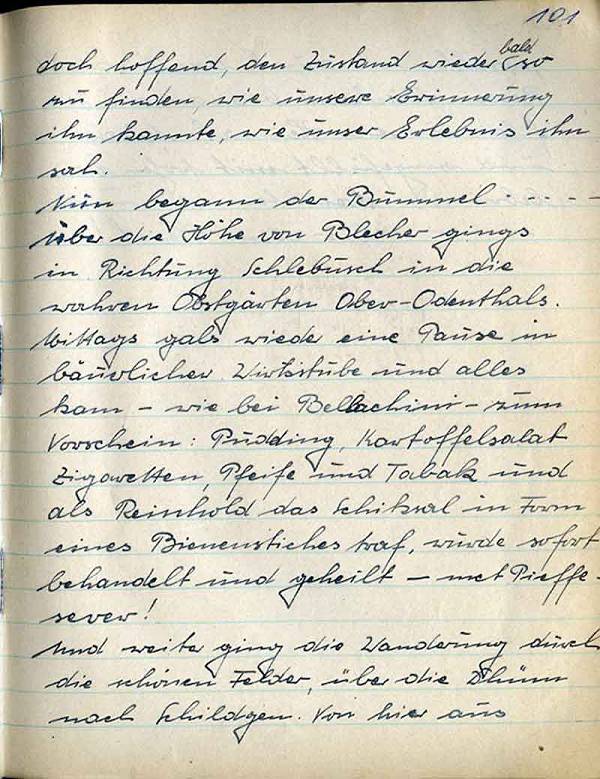 101
doch hoffend, den Zustand wieder bald so
zu finden, wie unsere Erinnerung
ihn kannte, wie unser Erlebnis ihn
sah.
Nun begann der Bummel - - - -
Über die Höhe von Blecher gings
in Richtung Schlebusch in die
wahren Obstgärten Ober-Odenthals.
Mittags gabs wieder eine Pause in
bäuerlicher Wirtsstube und alles
kam - wie bei Bellachini - zum
Vorschein: Pudding, Kartoffelsalat
Zigaretten, Pfeife und Tabak und
als Reinhold das Schiksal in Form
eines Bienenstiches traf, wurde sofort
behandelt und geheilt - met Pieffe-
sever!
Und weiter ging die Wanderung durch
die schönen Felder, über die Dhünn
nach Schildgen. Von hier aus